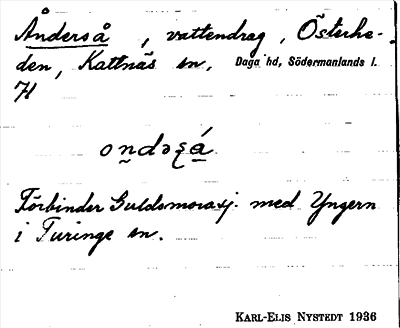 Ånderså , vattendrag , Österhe-
den, Kattnäs sn. Daga hd, Södermanlands l.
71
Förbinder Guldsmorasj. med Yngern
i Turinge sn.
KARL-ELIS NYSTEDT 1936